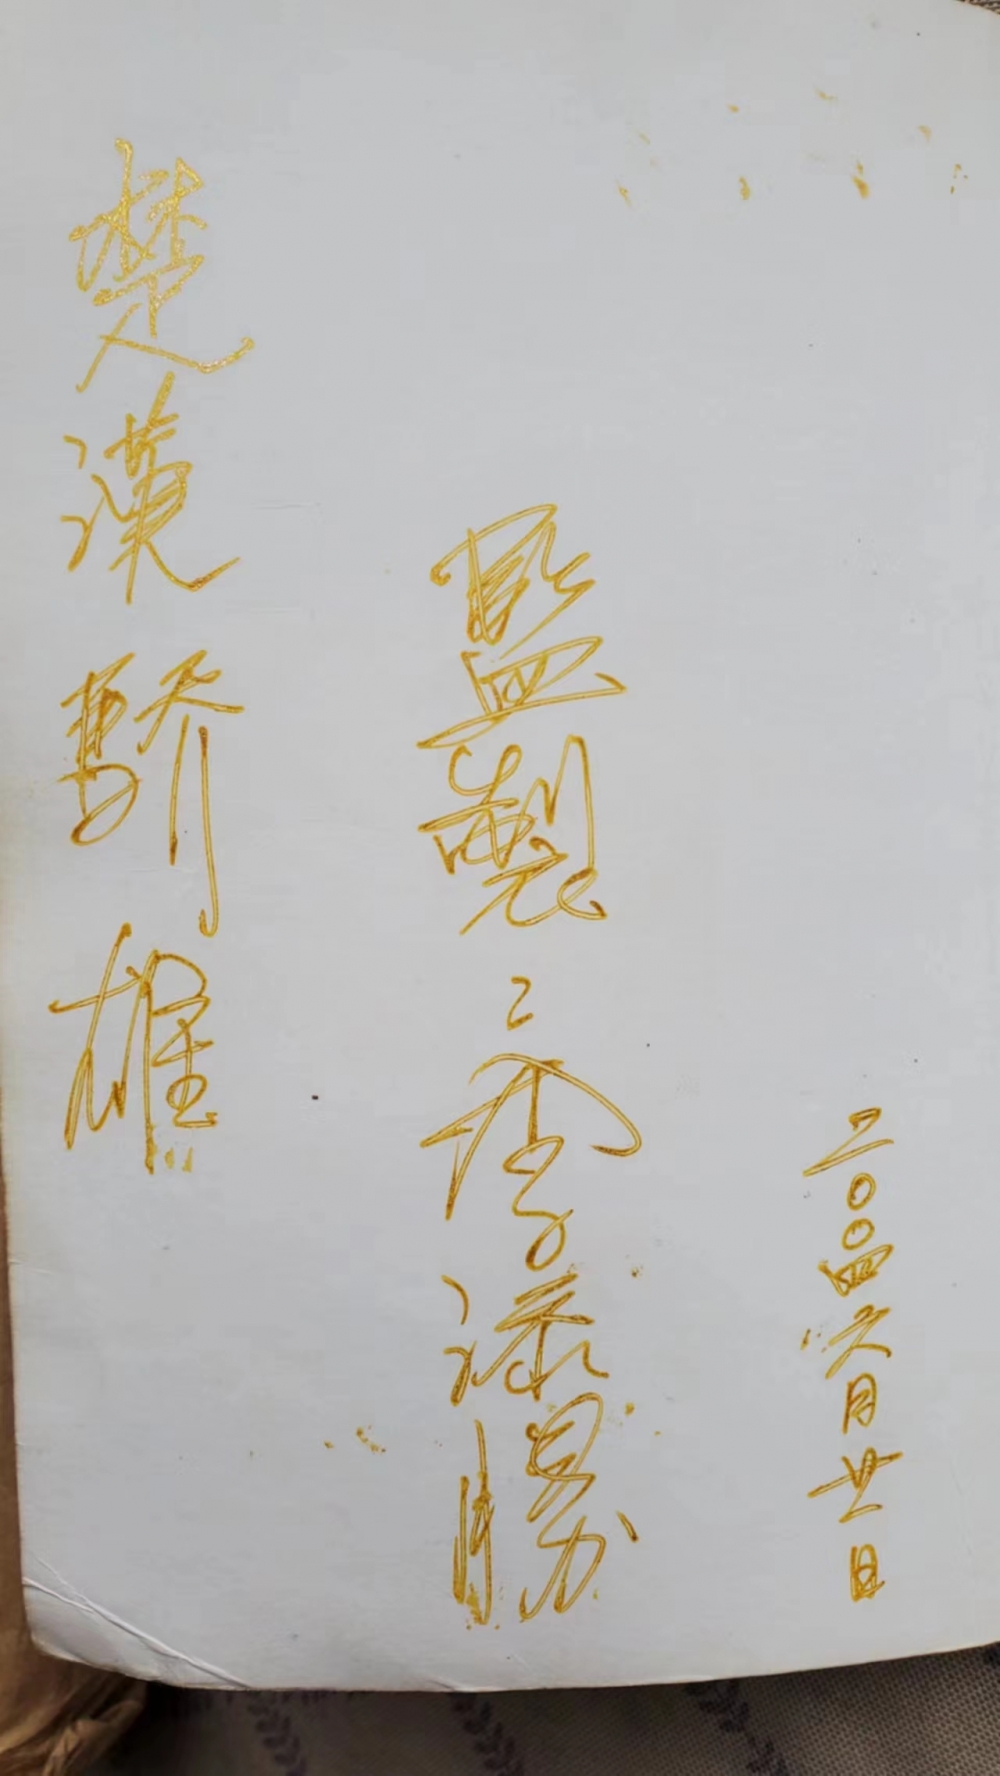 楚漢驕雄
監製：李添勝
二〇〇四六月廿日